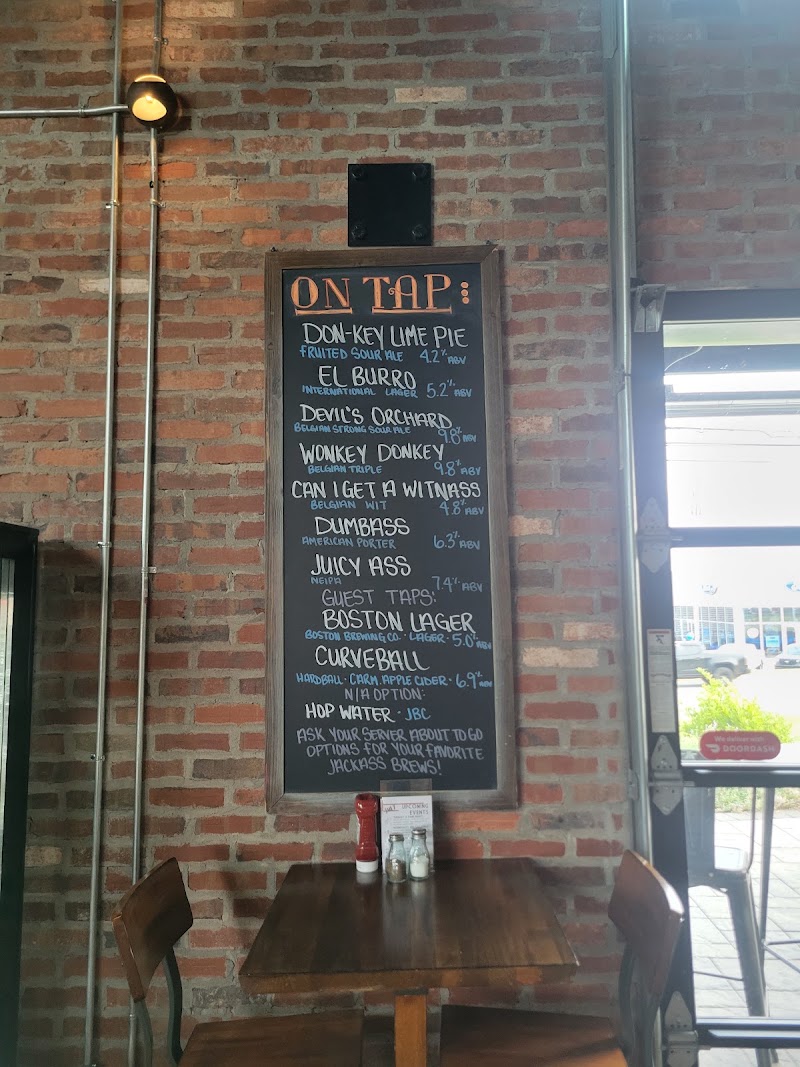 ON TAP:
DON-KEY LIME PIE
FRUITED SOUR ALE 4.2% ABV
EL BURRO
INTERNATIONAL LAGER 5.2% ABV
DEVIL'S ORCHARD
BELGIAN STRONG SOUR ALE 9.8% ABV
WONKEY DONKEY
BELGIAN TRIPLE 9.8% ABV
CAN I GET A WITNASS
BELGIAN WIT 4.8% ABV
DUMBASS
AMERICAN PORTER 6.3% ABV
JUICY ASS
NEIPA 7.4% ABV
GUEST TAPS:
BOSTON LAGER
BOSTON BREWING CO. · LAGER · 5.0% ABV
CURVEBALL
HARDBALL · CARM. APPLE CIDER · 6.9% ABV
N/A OPTION:
HOP WATER · JBC
ASK YOUR SERVER ABOUT TO GO
OPTIONS FOR YOUR FAVORITE
JACKASS BREWS!
UPCOMING
EVENTS
We deliver with
DOORDASH